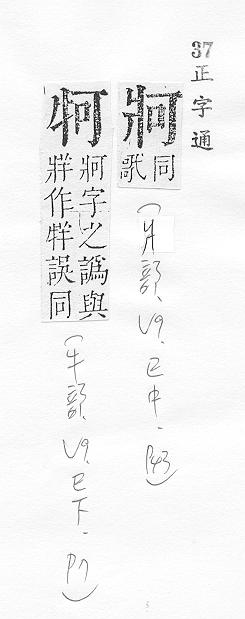 37正字通
牁
同
歌
(爿部, V9, 巳中, P43)
牱
牁字之譌與
牂作誤同
(牛部, V9, 巳下, P7)